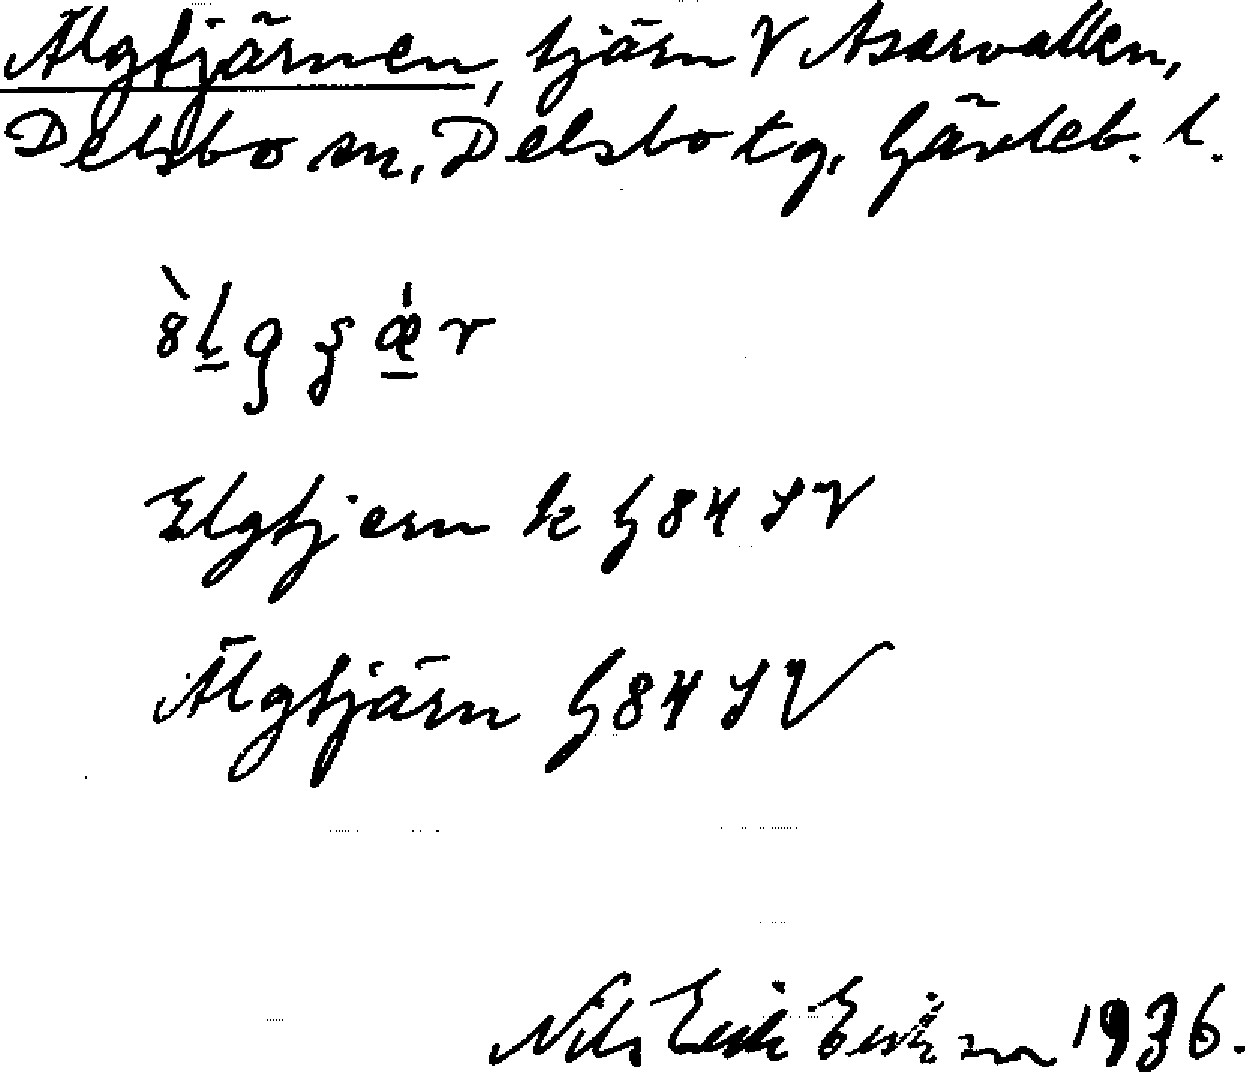 Älgtjärnen, tjärn V Asarvallen,
Delsbo sn, Delsbo tg, Gävleb. l.
Elgtjern k G 84 SV
Älgtjärn G 84 SV
Nils Erik Eriksson 1936.